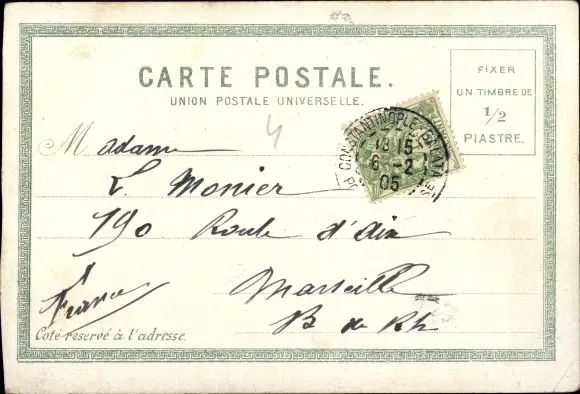 CARTE POSTALE.
UNION POSTALE UNIVERSELLE.
FIXER
UN TIMBRE DE
1/2
PIASTRE.
4
CONSTANTINOPLE GALATA
18 15
6 -2
05
Madame
L. Monier
190 Route d'Aix
Marseille
B de Rh
France
Coté reservé à l'adresse.